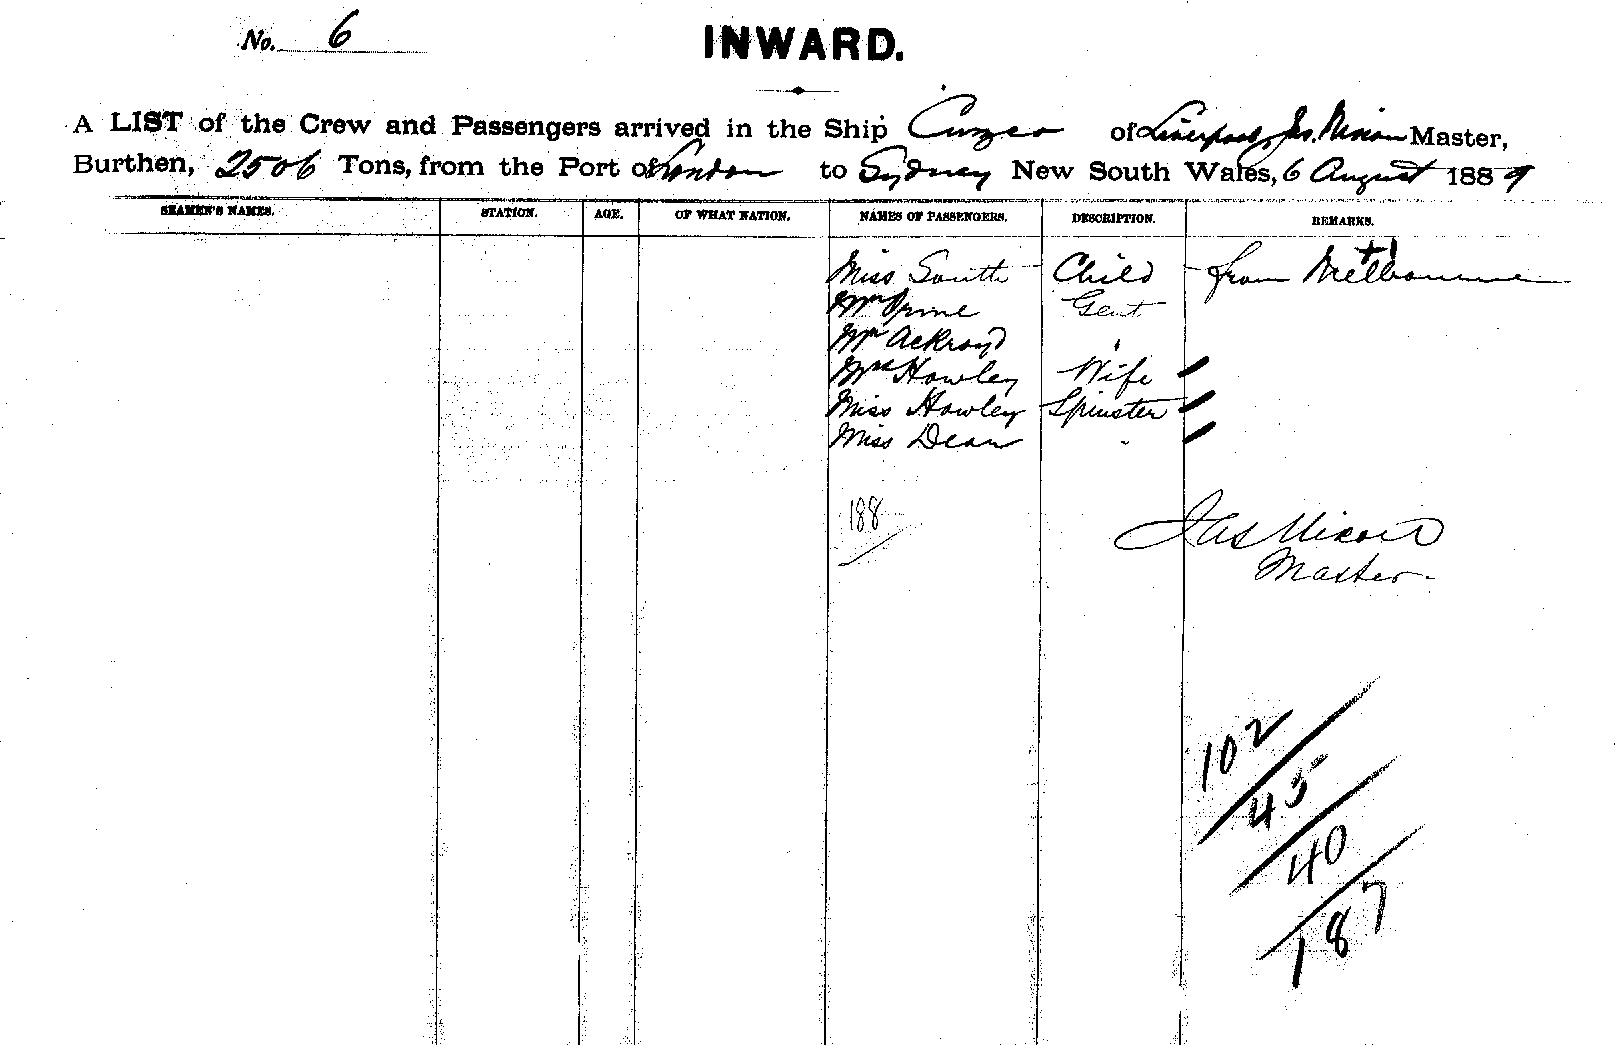 No. 6
INWARD.
A LIST of the Crew and Passengers arrived in the Ship Cuzco of Liverpool, Jas. Nixon Master,
Burthen, 2506 Tons, from the Port of London to Sydney New South Wales, 6 August 1889
SEAMEN'S NAMES. STATION. AGE. OF WHAT NATION. NAMES OF PASSENGERS. DESCRIPTION. REMARKS.
Miss South Child from Melbourne
Mr Gent
Mr Ackroyd "
Mrs Howley Wife
Miss Howley Spinster
Miss Dean "
188
Jas Nixon
Master
102
45
40
187